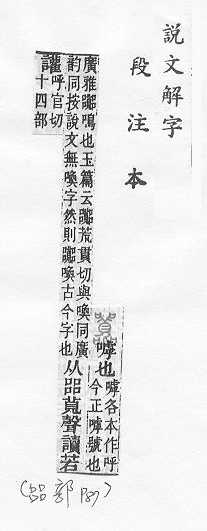 說文解字
段注本
嘑也
嘑各本作呼
今正嘑號也
廣雅鳴也玉篇云荒貫切與喚同廣
韵同按說文無喚字然則喚古今字也
从㗊萈聲讀若
讙
呼官切
十四部
(㗊部P87)